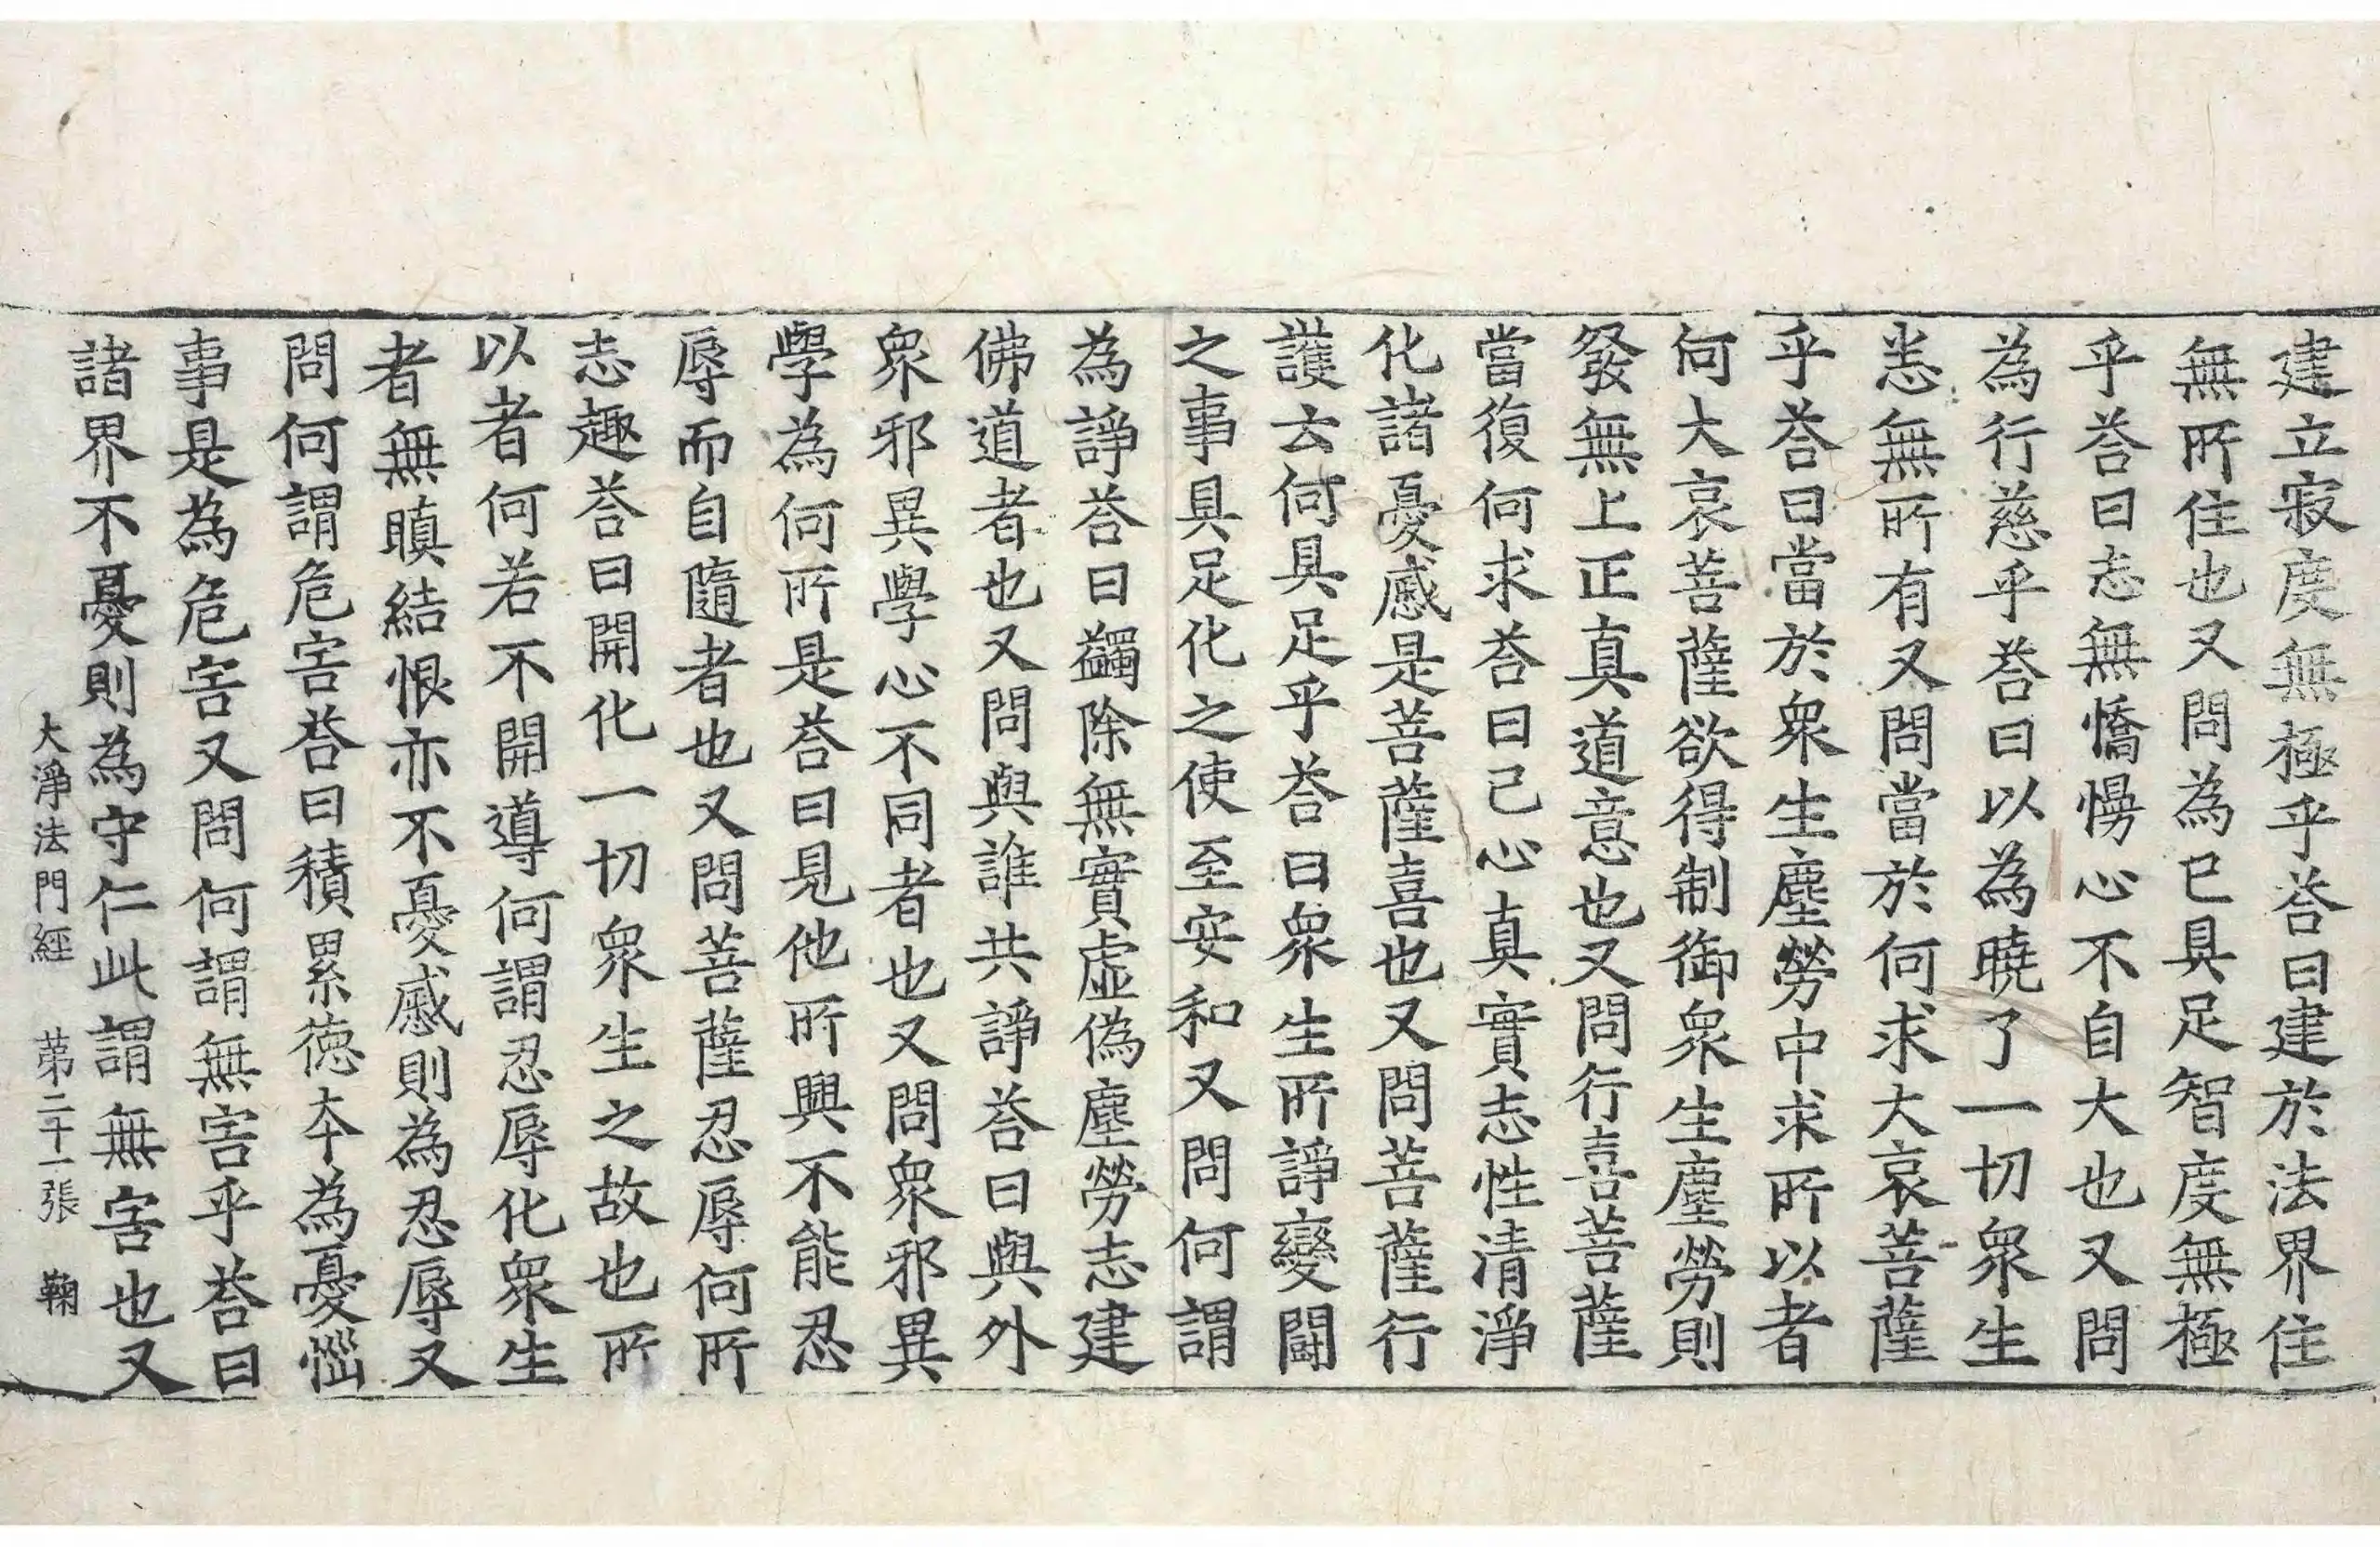 建立寂度無極乎荅曰建於法界住
無所住也又問為已具足智度無極
乎荅曰志無憍慢心不自大也又問
為行慈乎荅曰以為曉了一切眾生
悉無所有又問當於何求大哀菩薩
乎荅曰當於眾生塵勞中求所以者
何大哀菩薩欲得制御眾生塵勞則
發無上正真道意也又問行喜菩薩
當復何求荅曰己心真實志性清淨
化諸憂慼是菩薩喜也又問菩薩行
護云何具足乎荅曰眾生所諍變鬪
之事具足化之使至安和又問何謂
為諍荅曰蠲除無實虛偽塵勞志建
佛道者也又問與誰共諍荅曰與外
眾邪異學心不同者也又問眾邪異
學為何所是荅曰見他所興不能忍
辱而自隨者也又問菩薩忍辱何所
志趣荅曰開化一切眾生之故也所
以者何若不開導何謂忍辱化眾生
者無瞋結恨亦不憂慼則為忍辱又
問何謂危害荅曰積累德本為憂惱
事是為危害又問何謂無害乎荅曰
諸界不憂則為守仁此謂無害也又
大淨法門經 第二十一張 鞠